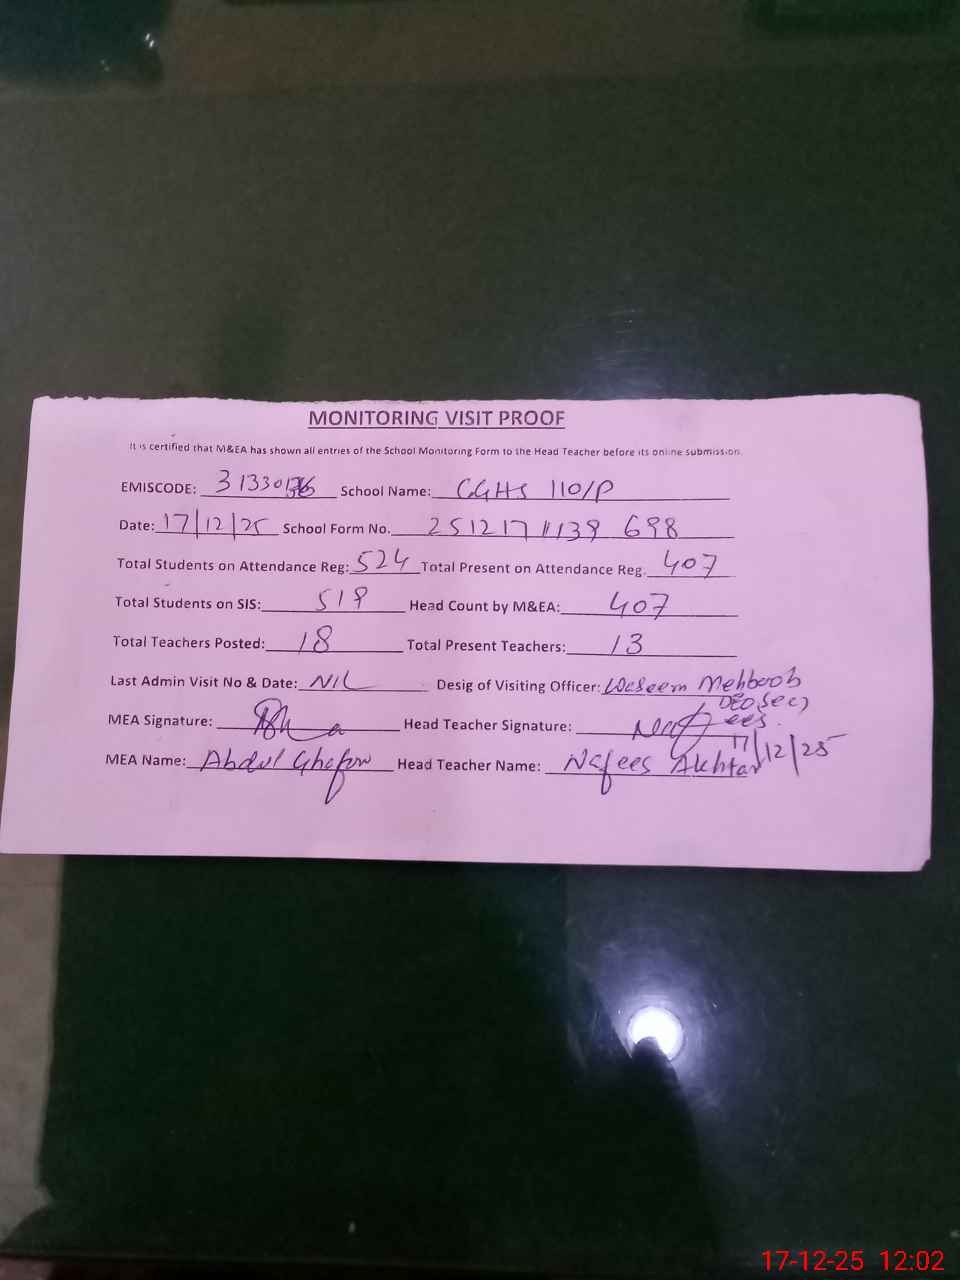 MONITORING VISIT PROOF
It is certified that M&EA has shown all entries of the School Monitoring Form to the Head Teacher before its online submission.
EMISCODE: School Name: GGHS 110/P
Date: 17/12/25 School Form No. 251217 11139 698
Total Students on Attendance Reg: 524 Total Present on Attendance Reg. 407
Total Students on SIS: 519 Head Count by M&EA: 407
Total Teachers Posted: 18 Total Present Teachers: 13
Last Admin Visit No & Date: NIL Desig of Visiting Officer: Waseem Mehboob
DEO (Sec)
MEA Signature: Head Teacher Signature: Nafees
17/12/25
MEA Name: Abdul Ghafoor Head Teacher Name: Nafees Akhtar
17-12-25 12:02